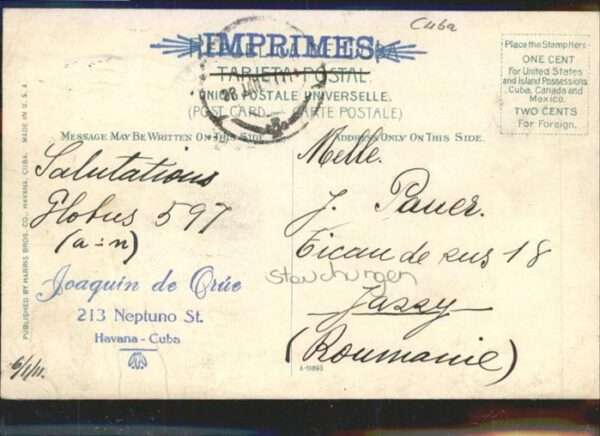 Cuba
IMPRIMES
TARJETA POSTAL
UNION POSTALE UNIVERSELLE.
(POST CARD — CARTE POSTALE)
Place the Stamp Here
ONE CENT
For United States
and Island Possessions
Cuba, Canada and
Mexico.
TWO CENTS
For Foreign.
MESSAGE MAY BE WRITTEN ON THIS SIDE.
ADDRESS ONLY ON THIS SIDE.
Salutations
Globus 597
(a=n)
Joaquin de Orúe
213 Neptuno St.
Havana - Cuba
6/1/11.
Melle.
J. Pauer.
Ticau de sus 18
Stauchungen
Jassy
(Roumanie)
A-11893
PUBLISHED BY HARRIS BROS. CO., HAVANA, CUBA. MADE IN U.S.A.